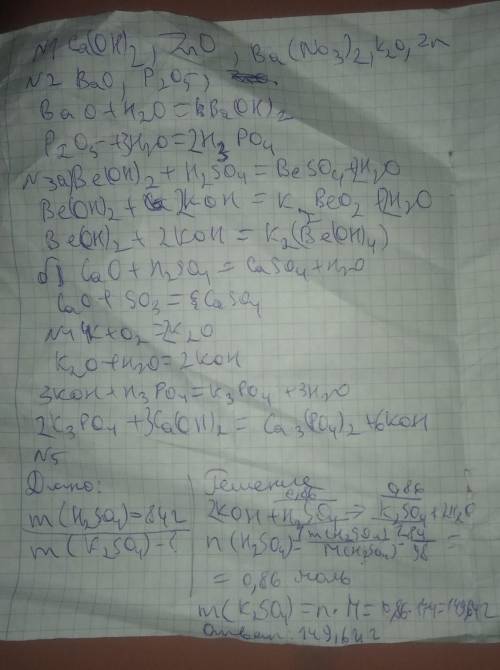 N1 Ca(OH)2, ZnO, Ba(NO3)2, K2O, Zn
N2 BaO, P2O5,
BaO+H2O=Ba(OH)2
P2O5+3H2O=2H3PO4
N3 a) Be(OH)2+H2SO4=BeSO4+2H2O
Be(OH)2+2KOH=K2BeO2+2H2O
Be(OH)2+2KOH=K2(Be(OH)4)
б) CaO+H2SO4=CaSO4+H2O
CaO+SO3=CaSO4
N4 4K+O2=2K2O
K2O+H2O=2KOH
3KOH+H3PO4=K3PO4+3H2O
2K3PO4+3Ca(OH)2=Ca3(PO4)2+6KOH
N5
Дано:
m(H2SO4)=84г
m(K2SO4)-?
Решение
0,86 0,86
2KOH+H2SO4→K2SO4+2H2O
n(H2SO4)=m(H2SO4)/M(H2SO4)=84/98=
=0,86 моль
m(K2SO4)=n·M=0,86·174=149,64г
Ответ: 149,64г